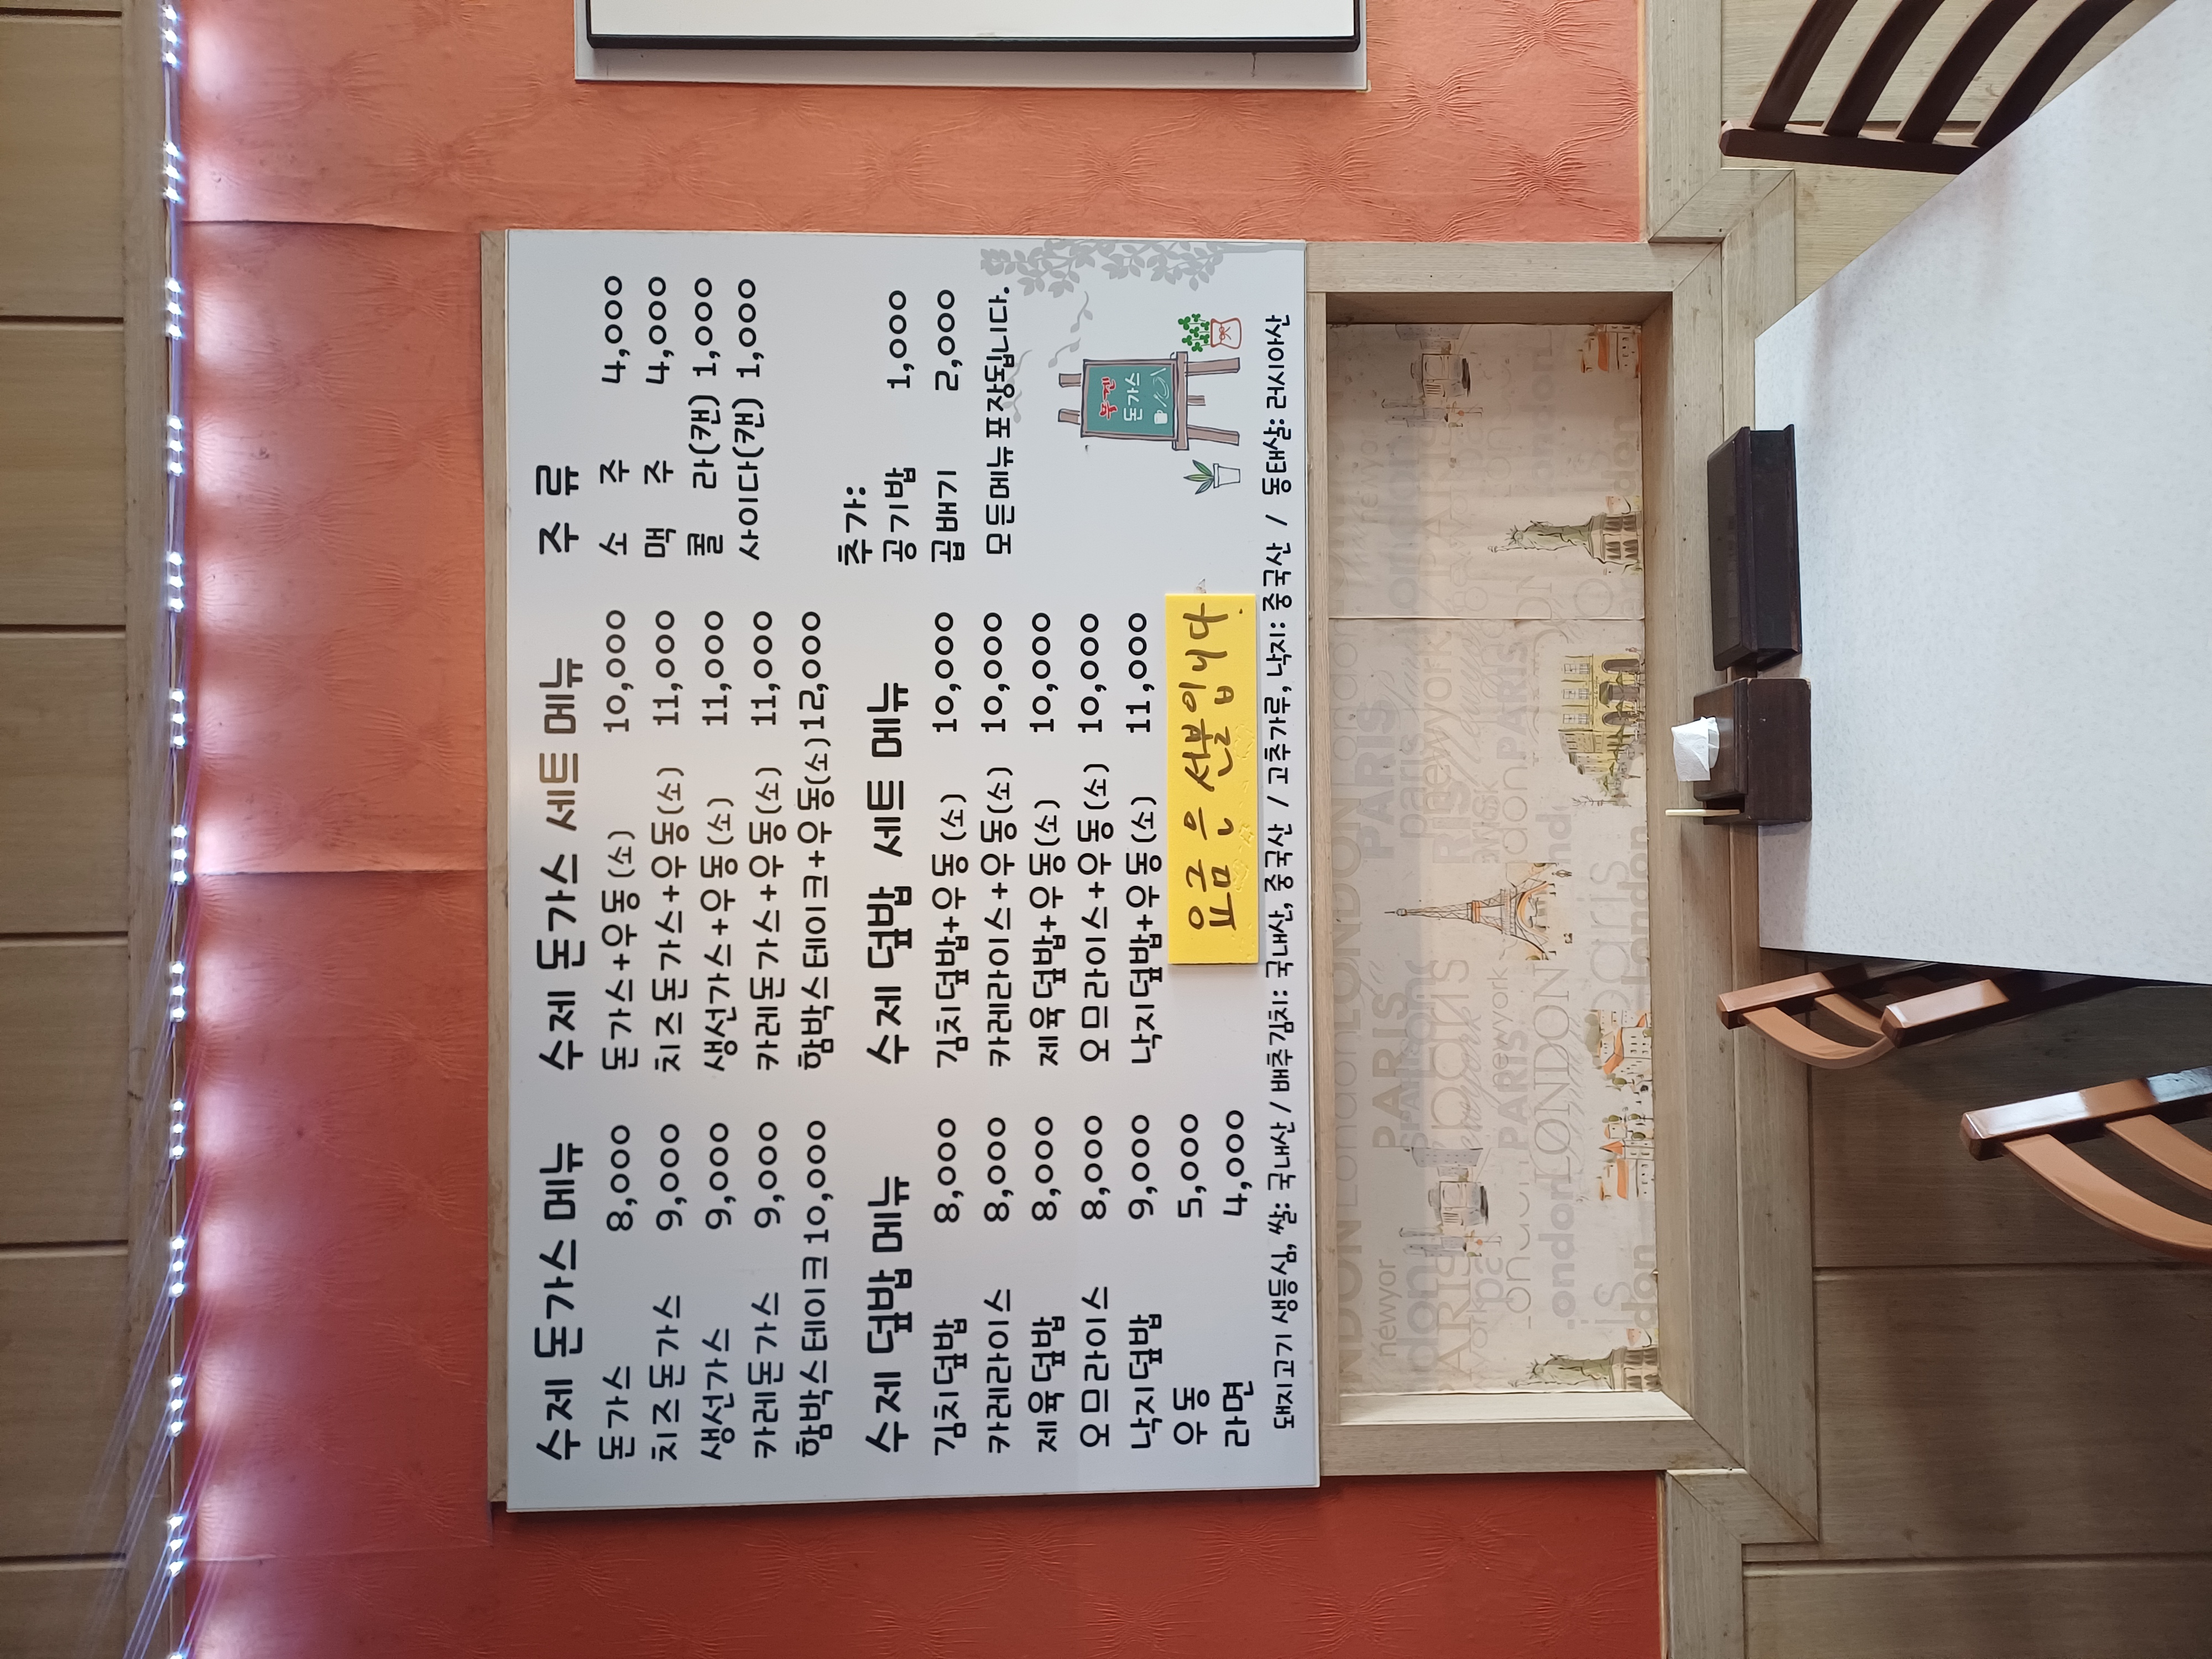 수제 돈가스 메뉴
돈가스 8,000
치즈돈가스 9,000
생선가스 9,000
카레돈가스 9,000
함박스테이크 10,000
수제 덮밥 메뉴
김치덮밥 8,000
카레라이스 8,000
제육덮밥 8,000
오므라이스 8,000
낙지덮밥 9,000
우동 5,000
라면 4,000
수제 돈가스 세트 메뉴
돈가스+우동(소) 10,000
치즈돈가스+우동(소) 11,000
생선가스+우동(소) 11,000
카레돈가스+우동(소) 11,000
함박스테이크+우동(소)12,000
수제 덮밥 세트 메뉴
김치덮밥+우동(소) 10,000
카레라이스+우동(소) 10,000
제육덮밥+우동(소) 10,000
오므라이스+우동(소) 10,000
낙지덮밥+우동(소) 11,000
요금은 선불입니다.
주 류
소 주 4,000
맥 주 4,000
콜 라(캔) 1,000
사이다(캔) 1,000
추가:
공기밥 1,000
곱배기 2,000
모든메뉴 포장됩니다.
돈가스
돼지고기 생등심, 쌀: 국내산 / 배추김치: 국내산, 중국산 / 고추가루, 낙지: 중국산 / 동태살: 러시아산
LONDON
PARIS
newyork
london
PARIS
LONDON
paris